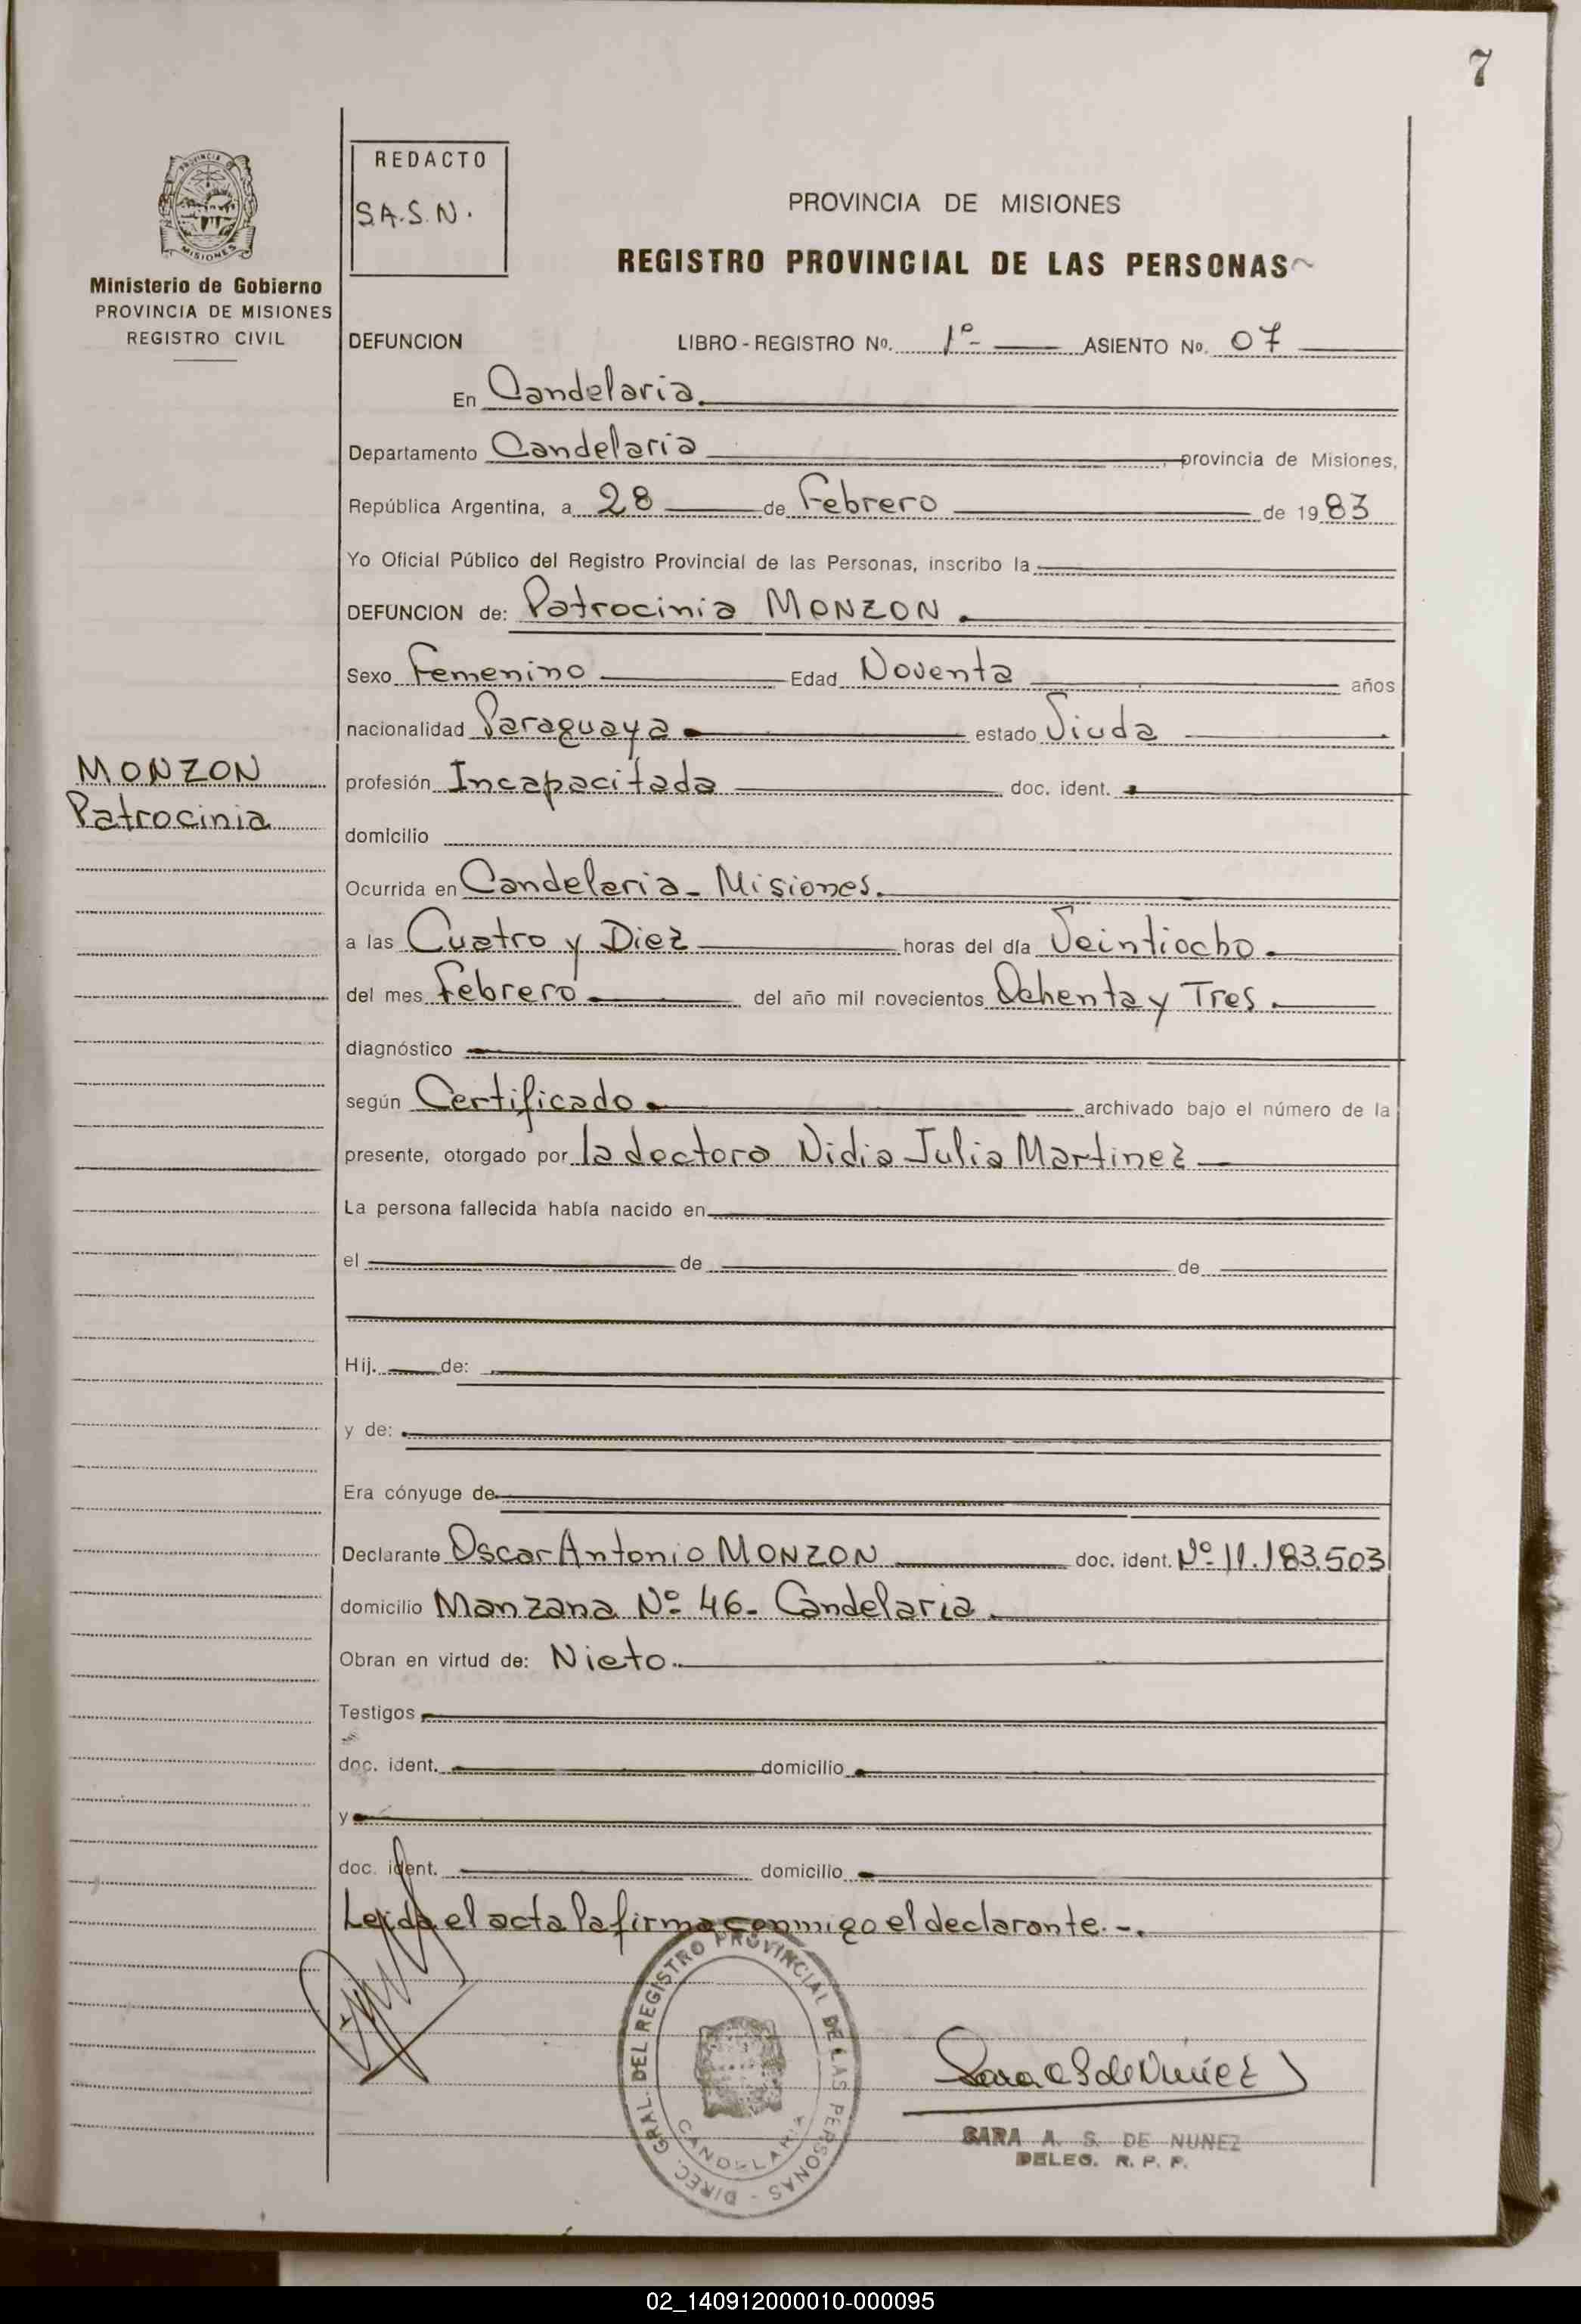 7
PROVINCIA DE
MISIONES
Ministerio de Gobierno
PROVINCIA DE MISIONES
REGISTRO CIVIL
REDACTO
S.A.S.N.
PROVINCIA DE MISIONES
REGISTRO PROVINCIAL DE LAS PERSONAS
DEFUNCION LIBRO - REGISTRO No. 1º ASIENTO No. 07
En Candelaria.
Departamento Candelaria, provincia de Misiones,
República Argentina, a 28 de Febrero de 1983
Yo Oficial Público del Registro Provincial de las Personas, inscribo la
DEFUNCION de: Patrocinia MONZON.
Sexo Femenino Edad Noventa años
nacionalidad Paraguaya estado Viuda
MONZON
Patrocinia
profesión Incapacitada doc. ident.
domicilio
Ocurrida en Candelaria - Misiones.
a las Cuatro y Diez horas del día Veintiocho.
del mes Febrero del año mil novecientos Ochenta y Tres.
diagnóstico
según Certificado archivado bajo el número de la
presente, otorgado por la doctora Nidia Julia Martinez
La persona fallecida había nacido en
el de de
Hij. de:
y de:
Era cónyuge de
Declarante Oscar Antonio MONZON doc. ident. Nº 11.183.503
domicilio Manzana Nº 46- Candelaria.
Obran en virtud de: Nieto.
Testigos
doc. ident. domicilio
y
doc. ident. domicilio
Leida el acta la firma conmigo el declarante.-.
DIREC. GRAL. DEL REGISTRO PROVINCIAL DE LAS PERSONAS -
CANDELARIA
Sara A S de Nuñez
SARA A. S. DE NUNEZ
DELEG. R. P. P.
02_140912000010-000095